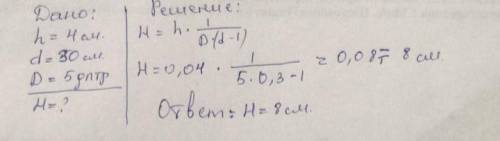 Дано:
h = 4 см.
d = 30 см.
D = 5 дптр
H = ?
Решение:
H = h · 1 / D(d-1)
H = 0,04 · 1 / 5·0,3-1 = 0,08 = 8 см.
Ответ: H = 8 см.